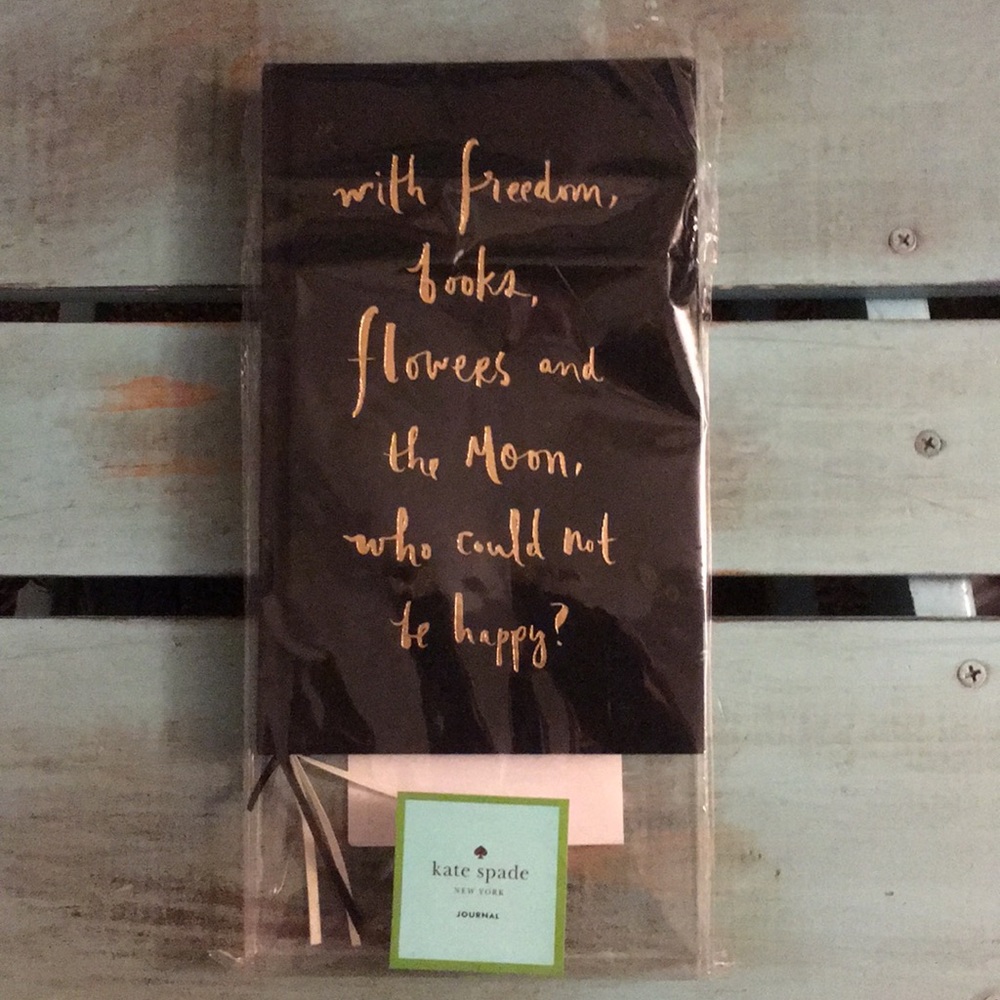 with freedom,
books,
flowers and
the Moon,
who could not
be happy?
kate spade
NEW YORK
JOURNAL